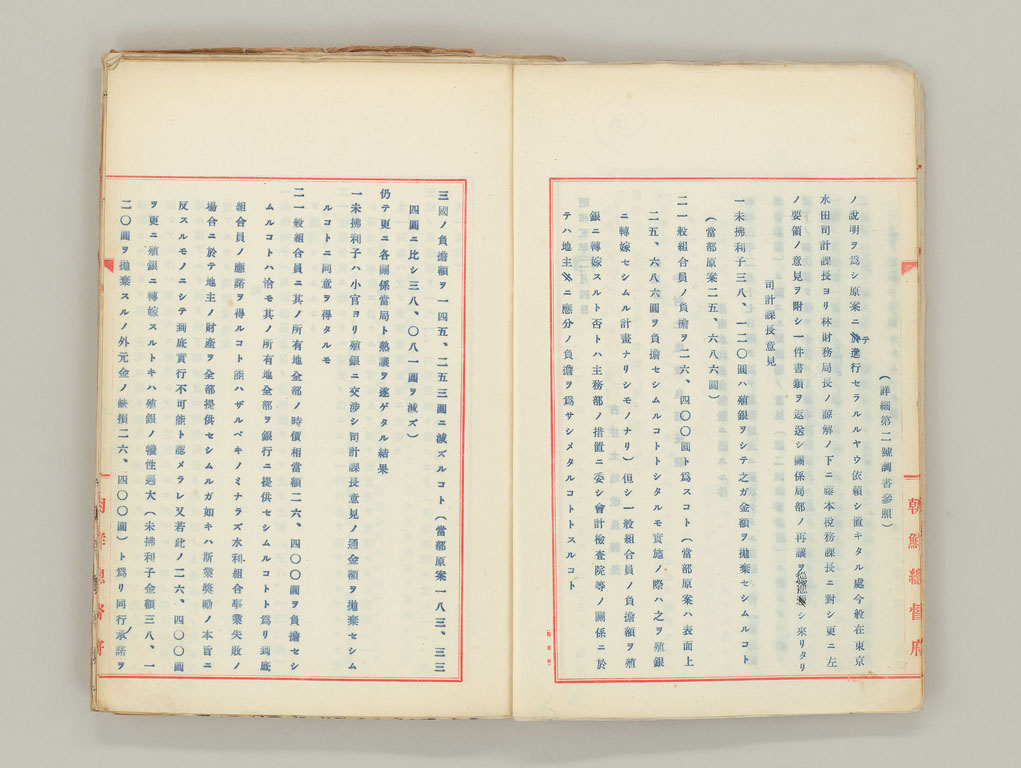 (詳細第二號調書參照)
ノ說明ヲ爲シ原案ニテ進行セラルルヤウ依賴シ置キタル處今般在東京
水田司計課長ヨリ林財務局長ノ諒解ノ下ニ藤本稅務課長ニ對シ更ニ左
ノ要領ノ意見ヲ附シ一件書類ヲ返送シ關係局部ノ再議ヲ慫慂シ來リタリ
司計課長意見
一未拂利子三八、一二〇圓ハ殖銀ヲシテ之ガ金額ヲ拋棄セシムルコト
(當部原案二五、六八六圓)
二一般組合員ノ負擔ヲ二六、四〇〇圓ト爲スコト(當部原案ハ表面上
二五、六八六圓ヲ負擔セシムルコトトシタルモ實施ノ際ハ之ヲ殖銀
ニ轉嫁セシムル計畫ナリシモノナリ)但シ一般組合員ノ負擔額ヲ殖
銀ニ轉嫁スルト否トハ主務部ノ措置ニ委シ會計檢査院等ノ關係ニ於
テハ地主ニ應分ノ負擔ヲ爲サシメタルコトトスルコト
朝鮮總督府
三國ノ負擔額ヲ一四五、二五三圓ニ減ズルコト(當部原案一八三、三三
四圓ニ比シ三八、〇八一圓ヲ減ズ)
仍テ更ニ各關係當局ト熟議ヲ遂ゲタル結果
一未拂利子ハ小官ヨリ殖銀ニ交涉シ司計課長意見ノ通金額ヲ拋棄セシム
ルコトニ同意ヲ得タルモ
二一般組合員ニ其ノ所有地全部ノ時價相當額二六、四〇〇圓ヲ負擔セシ
ムルコトハ恰モ其ノ所有地全部ヲ銀行ニ提供セシムルコトト爲リ到底
組合員ノ應諾ヲ得ルコト能ハザルベキノミナラズ水利組合事業失敗ノ
場合ニ於テ地主ノ財產ヲ全部提供セシムルガ如キハ斯業獎勵ノ本旨ニ
反スルモノニシテ到底實行不可能ト認メラレ又若此ノ二六、四〇〇圓
ヲ更ニ殖銀ニ轉嫁スルトキハ殖銀ノ犧牲過大(未拂利子金額三八、一
二〇圓ヲ拋棄スルノ外元金ノ缺損二六、四〇〇圓)ト爲リ同行承諾ヲ
朝鮮總督府